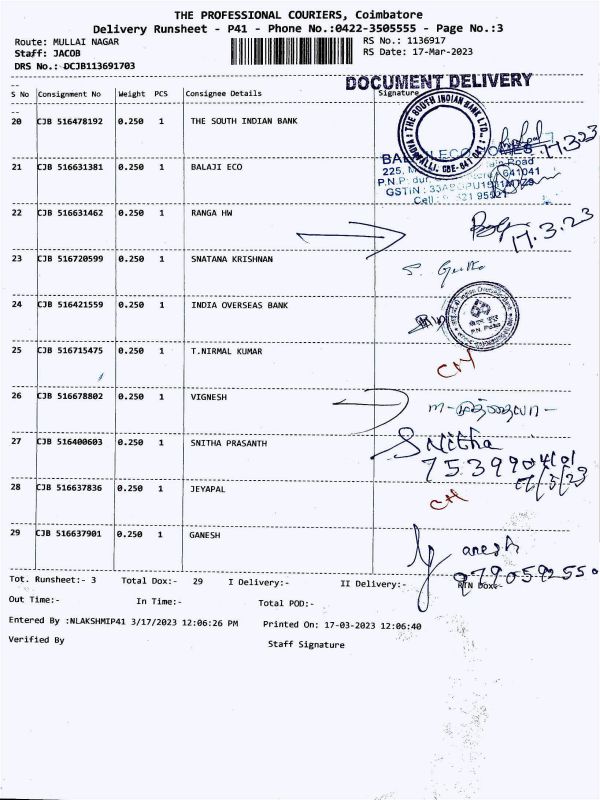 THE PROFESSIONAL COURIERS, Coimbatore
Delivery Runsheet - P41 - Phone No.:0422-3505555 - Page No.:3
Route: MULLAI NAGAR
RS No.: 1136917
Staff: JACOB
RS Date: 17-Mar-2023
DRS No.: DCJB113691703
DOCUMENT DELIVERY
S No Consignment No Weight PCS Consignee Details Signature
20 CJB 516478192 0.250 1 THE SOUTH INDIAN BANK
THE SOUTH INDIAN BANK LTD.
VADAVALLI, CBE-641 041
17.3.23
21 CJB 516631381 0.250 1 BALAJI ECO
225,
641041
GSTIN :
Cell :
22 CJB 516631462 0.250 1 RANGA HW
17.3.23
23 CJB 516720599 0.250 1 SNATANA KRISHNAN
24 CJB 516421559 0.250 1 INDIA OVERSEAS BANK
25 CJB 516715475 0.250 1 T.NIRMAL KUMAR
26 CJB 516678802 0.250 1 VIGNESH
27 CJB 516400603 0.250 1 SNITHA PRASANTH
Snitha
28 CJB 516637836 0.250 1 JEYAPAL
CH
29 CJB 516637901 0.250 1 GANESH
Ganesh
9790592550
Tot. Runsheet:- 3 Total Dox:- 29 I Delivery:- II Delivery:- RTN Dox:-
Out Time:- In Time:- Total POD:-
Entered By :NLAKSHMIP41 3/17/2023 12:06:26 PM Printed On: 17-03-2023 12:06:40
Verified By Staff Signature